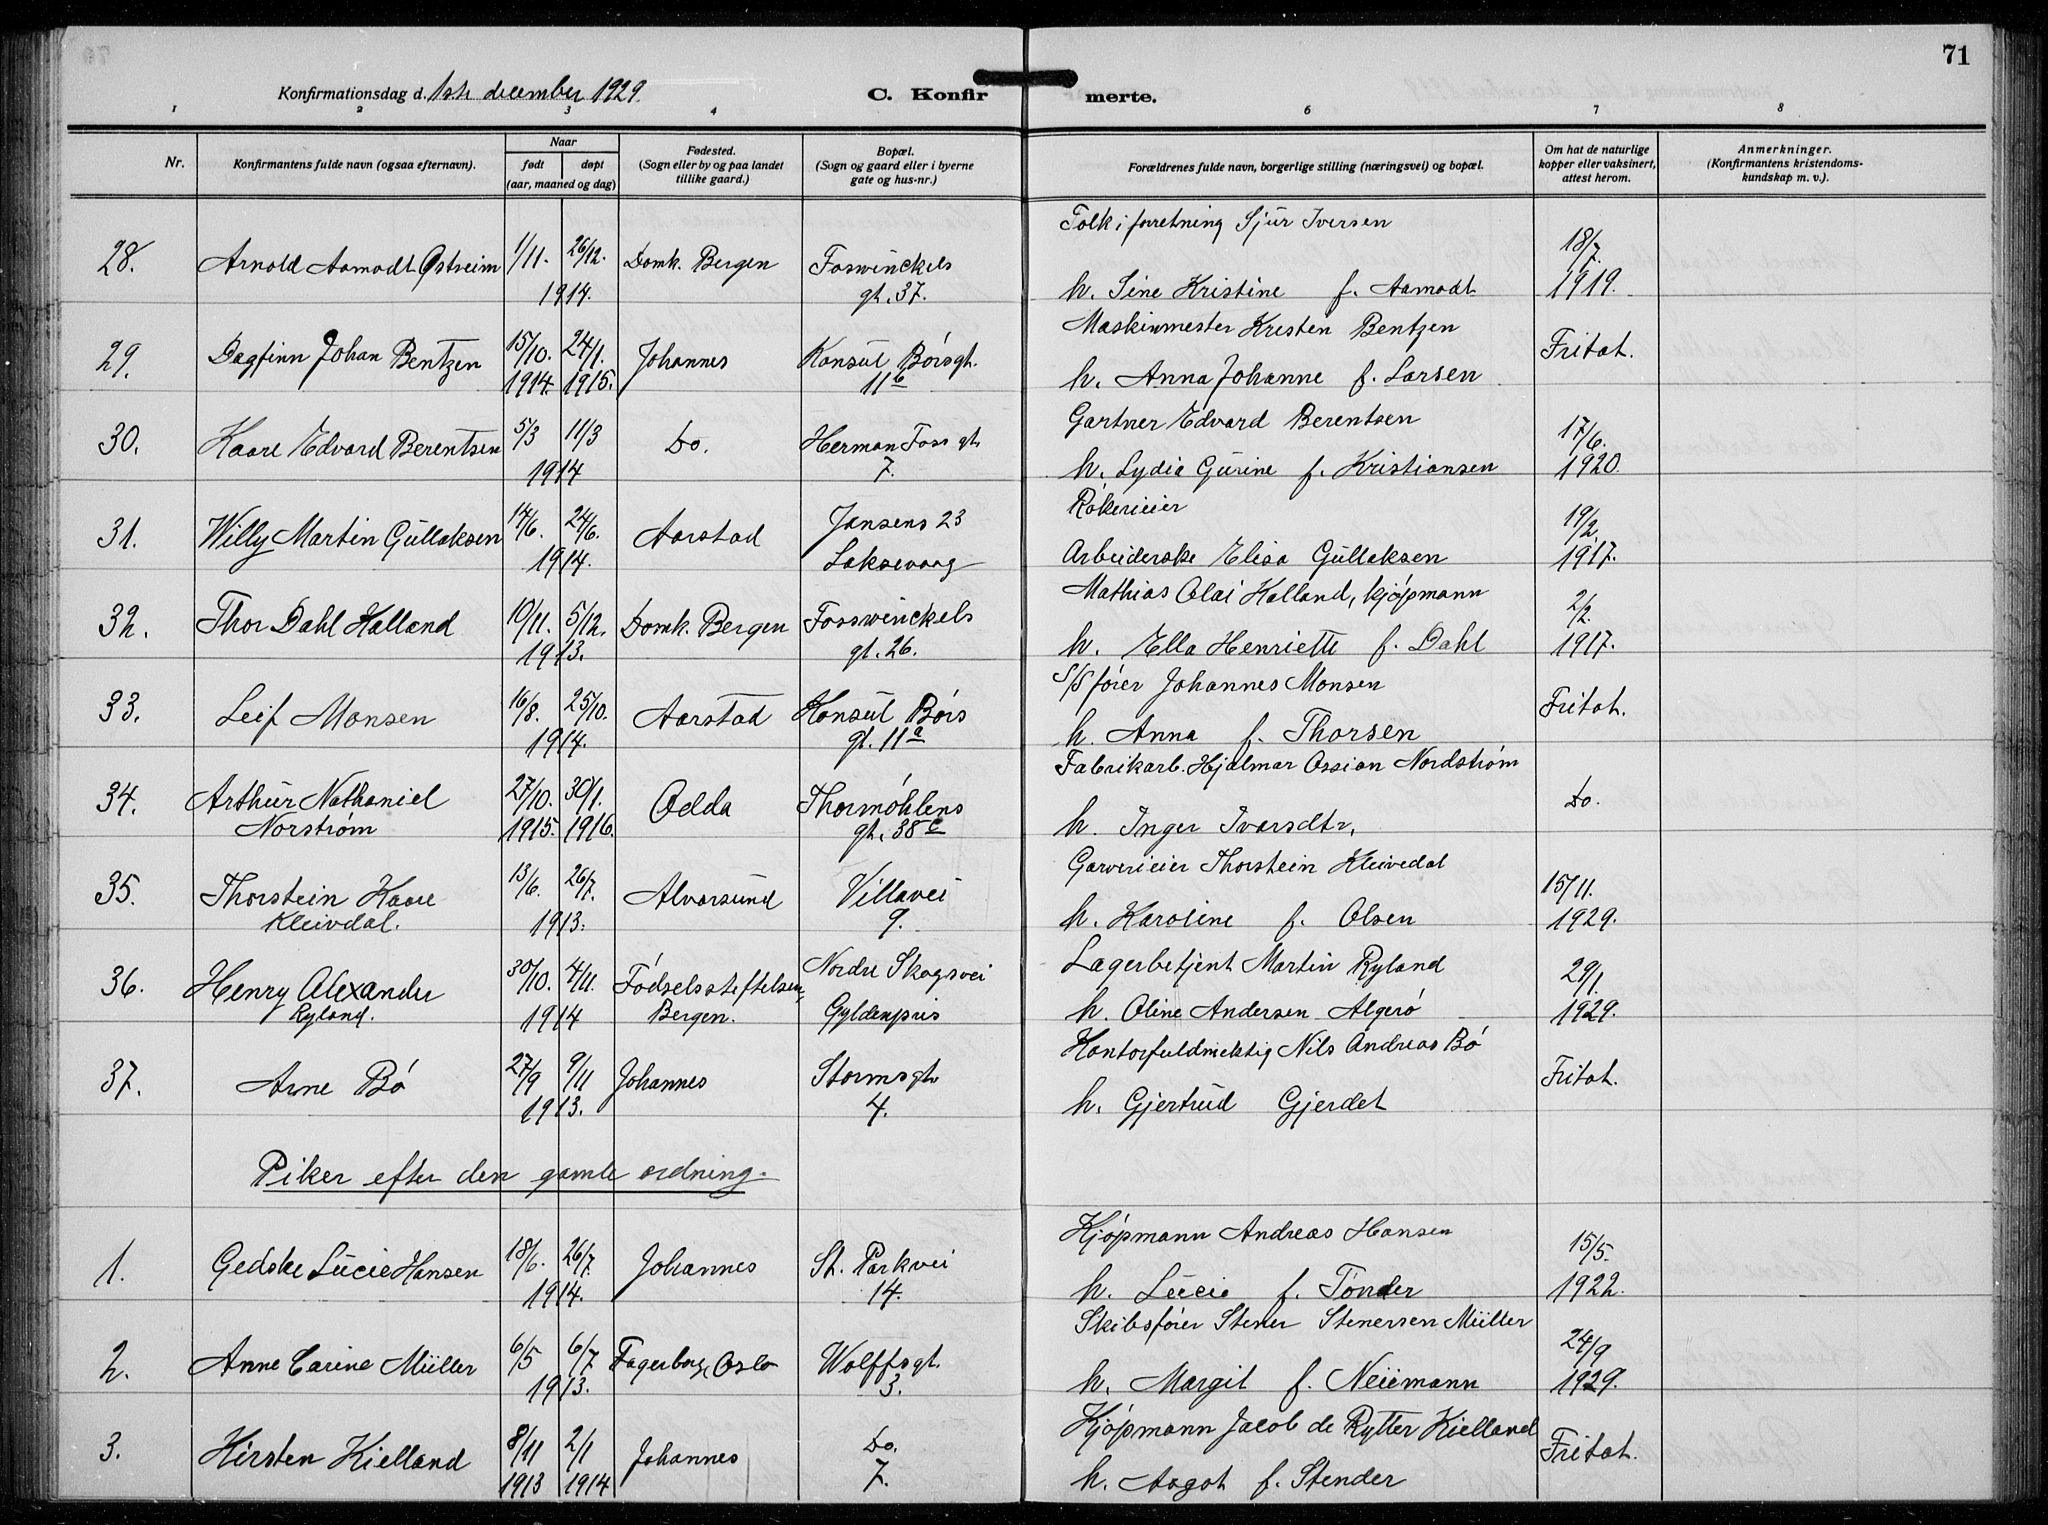 71
Konfirmationsdag d. 1ste december 1929.
C. Konfirmerte.
1 2 3 4 6 7 8
Nr.
Konfirmantens fulde navn (ogsaa efternavn).
Naar
født
døpt
(aar, maaned og dag)
Fødested.
(Sogn eller by og paa landet
tillike gaard.)
Bopæl.
(Sogn og gaard eller i byerne
gate og hus-nr.)
Forældrenes fulde navn, borgerlige stilling (næringsvei) og bopæl.
Om hat de naturlige
kopper eller vaksinert,
attest herom.
Anmerkninger.
(Konfirmantens kristendoms-
kundskap m. v.).
Tolk i forretning Sjur Iversen
28. Arnold Aamodt Østreim 1/11. 26/12. Domk. Bergen Fosswinckels 18/7.
1914. gt. 37. h. Sine Kristine f. Aamodt 1919.
Maskinmester Kristen Bentzen
29. Dagfinn Johan Bentzen 15/10. 24/1. Johannes Konsul Børsgt. Fritat.
1914. 1915. 11b h. Anna Johanne f. Larsen
Gartner Edvard Berentsen
30. Kaare Edvard Berentsen 5/3 11/3 Do. Herman Foss gt. 17/6.
1914 7. h. Lydia Gurine f. Kristiansen 1920.
Røkerieier
31. Willy Martin Gullaksen 14/6. 24/6. Aarstad Jansens 23 19/2.
1914. Laksevaag Arbeiderske Elisa Gullaksen 1917.
Mathias Olai Halland, kjøpmann
32. Thor Dahl Halland 10/11. 5/12. Domk. Bergen Fosswinckels 2/2.
1913. gt. 26. h. Ella Henriette f. Dahl 1917.
S/S fører Johannes Monsen
33. Leif Monsen 16/8. 25/10. Aarstad Konsul Børs Fritat.
1914. gt. 11a h. Anna f. Thorsen
Fabrikarb. Hjalmar Ossian Nordstrøm
34. Arthur Nathaniel 27/10. 30/1. Odda Thormøhlens Do.
Norstrøm 1915. 1916. gt. 38c h. Inger Ivarsdtr.
Garverieier Thorstein Kleivedal
35. Thorstein Kaare 13/6. 26/7. Alversund Villavei 15/11.
Kleivdal. 1913. 9. h. Karoline f. Olsen 1929.
Lagerbetjent Martin Ryland
36. Henry Alexander 30/10. 4/11. Fødselsstiftelsen, Nordre Skogsvei 29/1.
Ryland. 1914 Bergen. Gyldenpris h. Oline Andersen Algerø 1929.
Kontorfuldmektig Nils Andreas Bø
37. Arne Bø 27/9 9/11 Johannes Stormsgt. Fritat.
1913. 4. h. Gjertrud Gjerdet
Piker efter den gamle ordning.
Kjøpmann Andreas Hansen
1. Gedske Lucie Hansen 18/6. 26/7. Johannes St. Parkvei 15/5.
1914. 14. h. Lucie f. Tønder 1922.
Skibsfører Stener Stenersen Müller
2. Anne Carine Müller 6/5 6/7 Fagerborg, Oslo Wolffsgt. 24/9
1913. 3. h. Margit f. Neümann 1929.
Kjøpmann Jacob de Rytter Kielland
3. Kirsten Kielland 8/11 2/1 Johannes Do. Fritat.
1913 1914 7. h. Aagot f. Stender